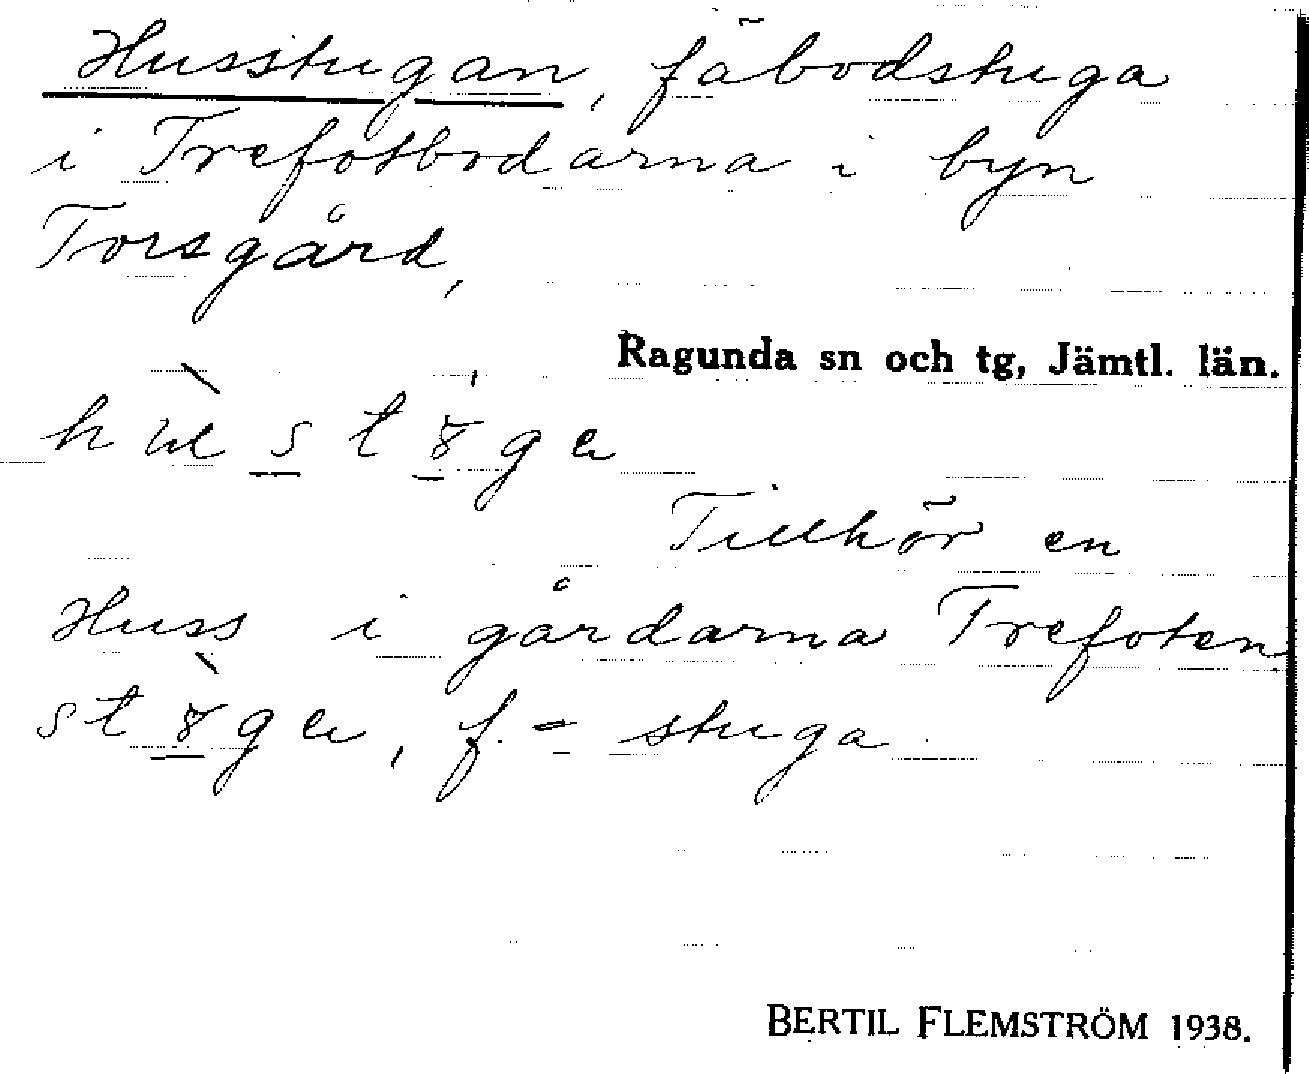 Husstugan, fäbodstuga
i Trefotbodarna i byn
Torsgård,
Ragunda sn och tg, Jämtl. län.
Tillhör en
Huss i gårdarna Trefoten
f. = stuga.
BERTIL FLEMSTRÖM 1938.